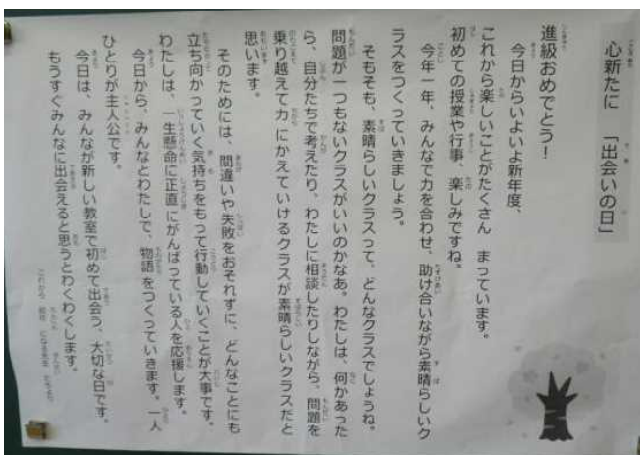 心新たに 「出会いの日」
進級おめでとう！
今日からいよいよ新年度、
これから楽しいことがたくさん まっています。
初めての授業や行事、楽しみですね。
今年一年、みんなで力を合わせ、助け合いながら素晴らしいク
ラスをつくっていきましょう。
そもそも、素晴らしいクラスって、どんなクラスでしょうね。
問題が一つもないクラスがいいのかなあ。わたしは、何かあった
ら、自分たちで考えたり、わたしに相談したりしながら、問題を
乗り越えて力にかえていけるクラスが素晴らしいクラスだと
思います。
そのためには、間違いや失敗をおそれずに、どんなことにも
立ち向かっていく気持ちをもって行動していくことが大事です。
わたしは、一生懸命に正直にがんばっている人を応援します。
今日から、みんなとわたしで、物語をつくっていきます。一人
ひとりが主人公です。
今日は、みんなが新しい教室で初めて出会う、大切な日です。
もうすぐみんなに出会えると思うとわくわくします。